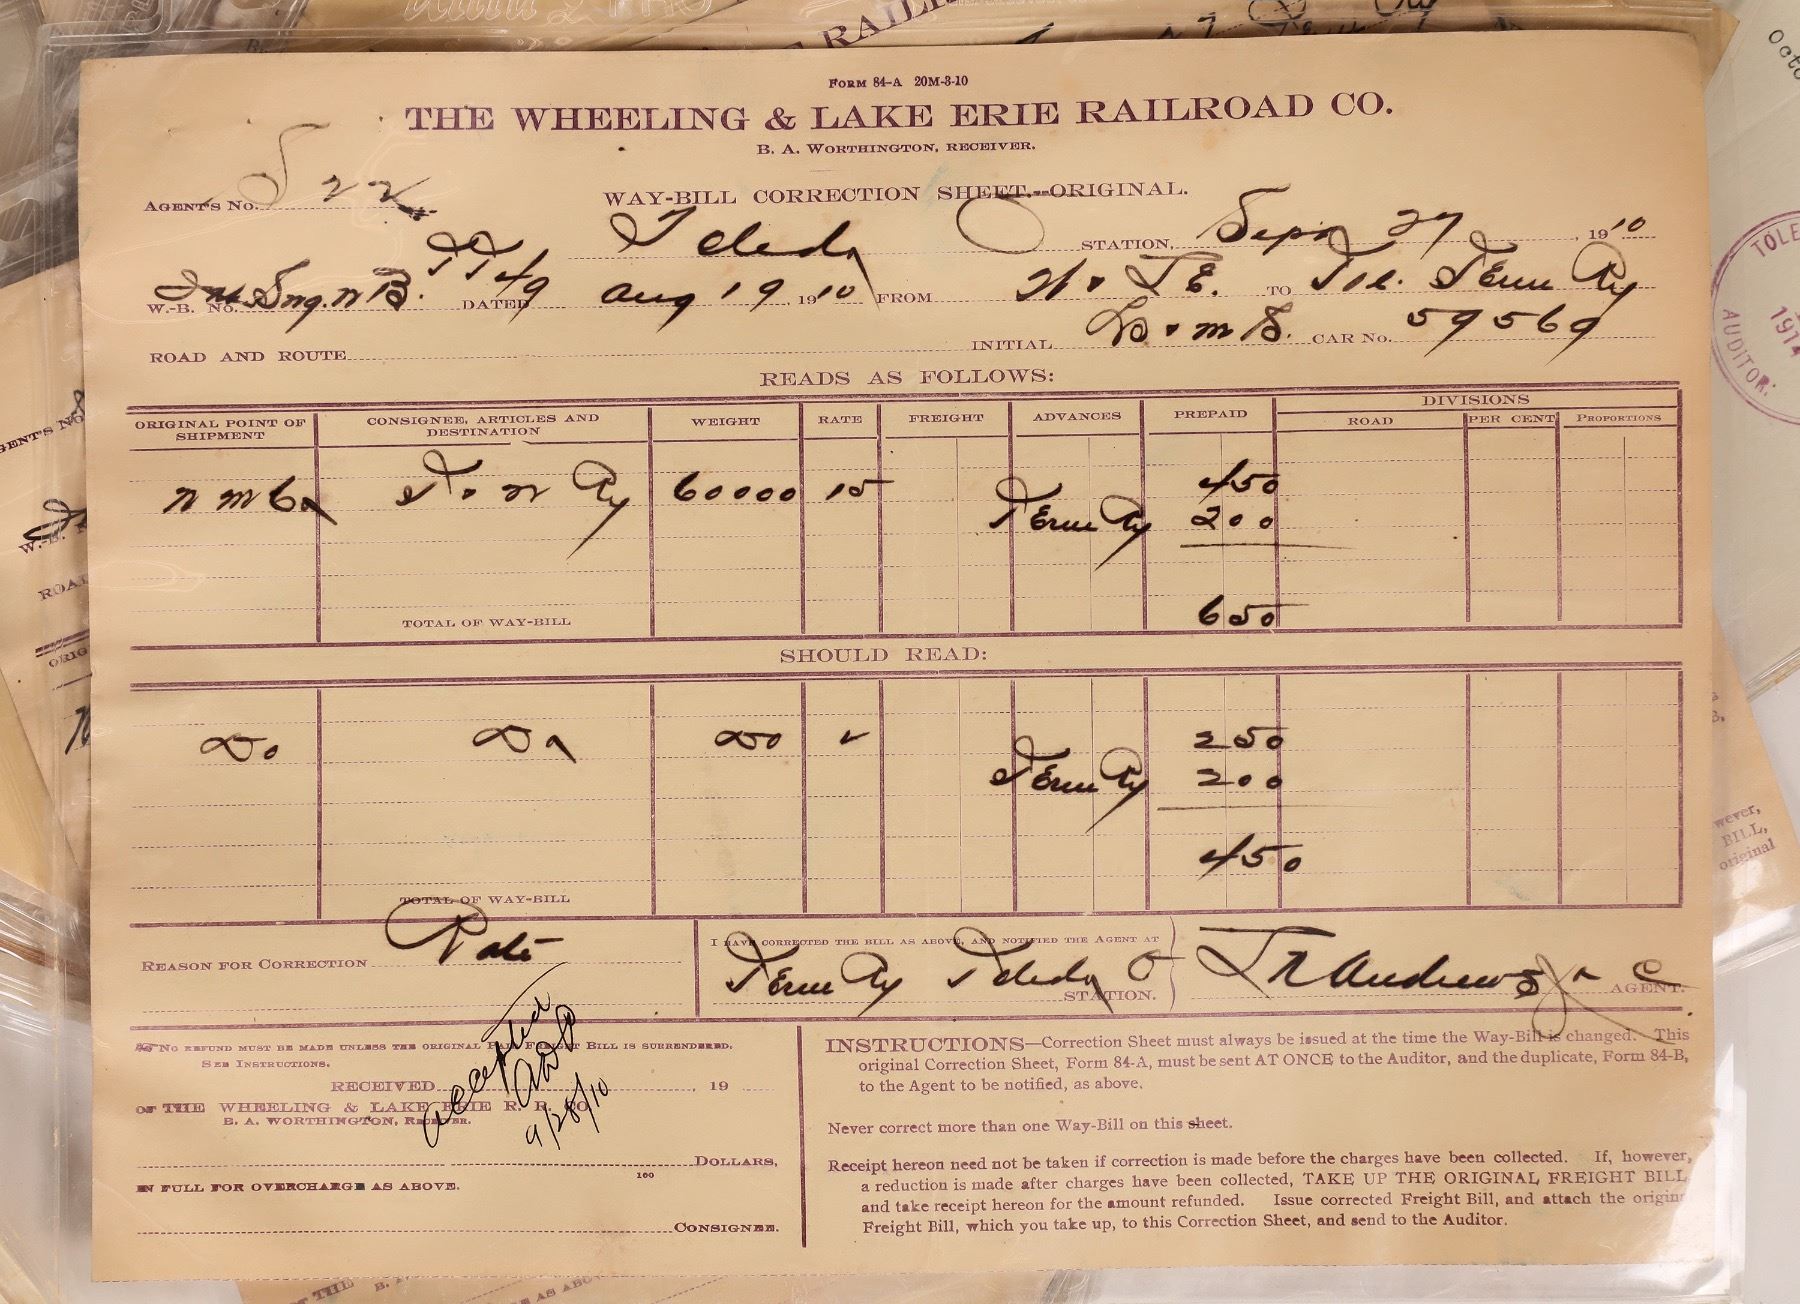 FORM 84-A 20M-3-10
THE WHEELING & LAKE ERIE RAILROAD CO.
B. A. WORTHINGTON, RECEIVER.
AGENT'S No. 522
WAY-BILL CORRECTION SHEET.--ORIGINAL.
Toledo O STATION, Sept 27, 1910
W.-B. No. DATED Aug 19 1910 FROM W & L E. TO Tol. Term Ry
ROAD AND ROUTE INITIAL CAR No. 59569
READS AS FOLLOWS:
ORIGINAL POINT OF SHIPMENT CONSIGNEE, ARTICLES AND DESTINATION WEIGHT RATE FREIGHT ADVANCES PREPAID DIVISIONS
ROAD PER CENT PROPORTIONS
450
60000 15
Term Ry 200
TOTAL OF WAY-BILL 650
SHOULD READ:
Do Do Do 250
Term Ry 200
450
TOTAL OF WAY-BILL
REASON FOR CORRECTION Rate
I HAVE CORRECTED THE BILL AS ABOVE, AND NOTIFIED THE AGENT AT
Term Ry Toledo O STATION. Andrews Jr AGENT.
NO REFUND MUST BE MADE UNLESS THE ORIGINAL PAID FREIGHT BILL IS SURRENDERED.
SEE INSTRUCTIONS.
RECEIVED , 19
OF THE WHEELING & LAKE ERIE R. R. CO.
B. A. WORTHINGTON, RECEIVER.
Accepted
9/28/10
100 DOLLARS,
IN FULL FOR OVERCHARGE AS ABOVE.
CONSIGNEE.
INSTRUCTIONS—Correction Sheet must always be issued at the time the Way-Bill is changed. This
original Correction Sheet, Form 84-A, must be sent AT ONCE to the Auditor, and the duplicate, Form 84-B,
to the Agent to be notified, as above.
Never correct more than one Way-Bill on this sheet.
Receipt hereon need not be taken if correction is made before the charges have been collected. If, however,
a reduction is made after charges have been collected, TAKE UP THE ORIGINAL FREIGHT BILL
and take receipt hereon for the amount refunded. Issue corrected Freight Bill, and attach the origin
Freight Bill, which you take up, to this Correction Sheet, and send to the Auditor.
TOLE
1914
AUDITOR.
wever,
BILL,
original